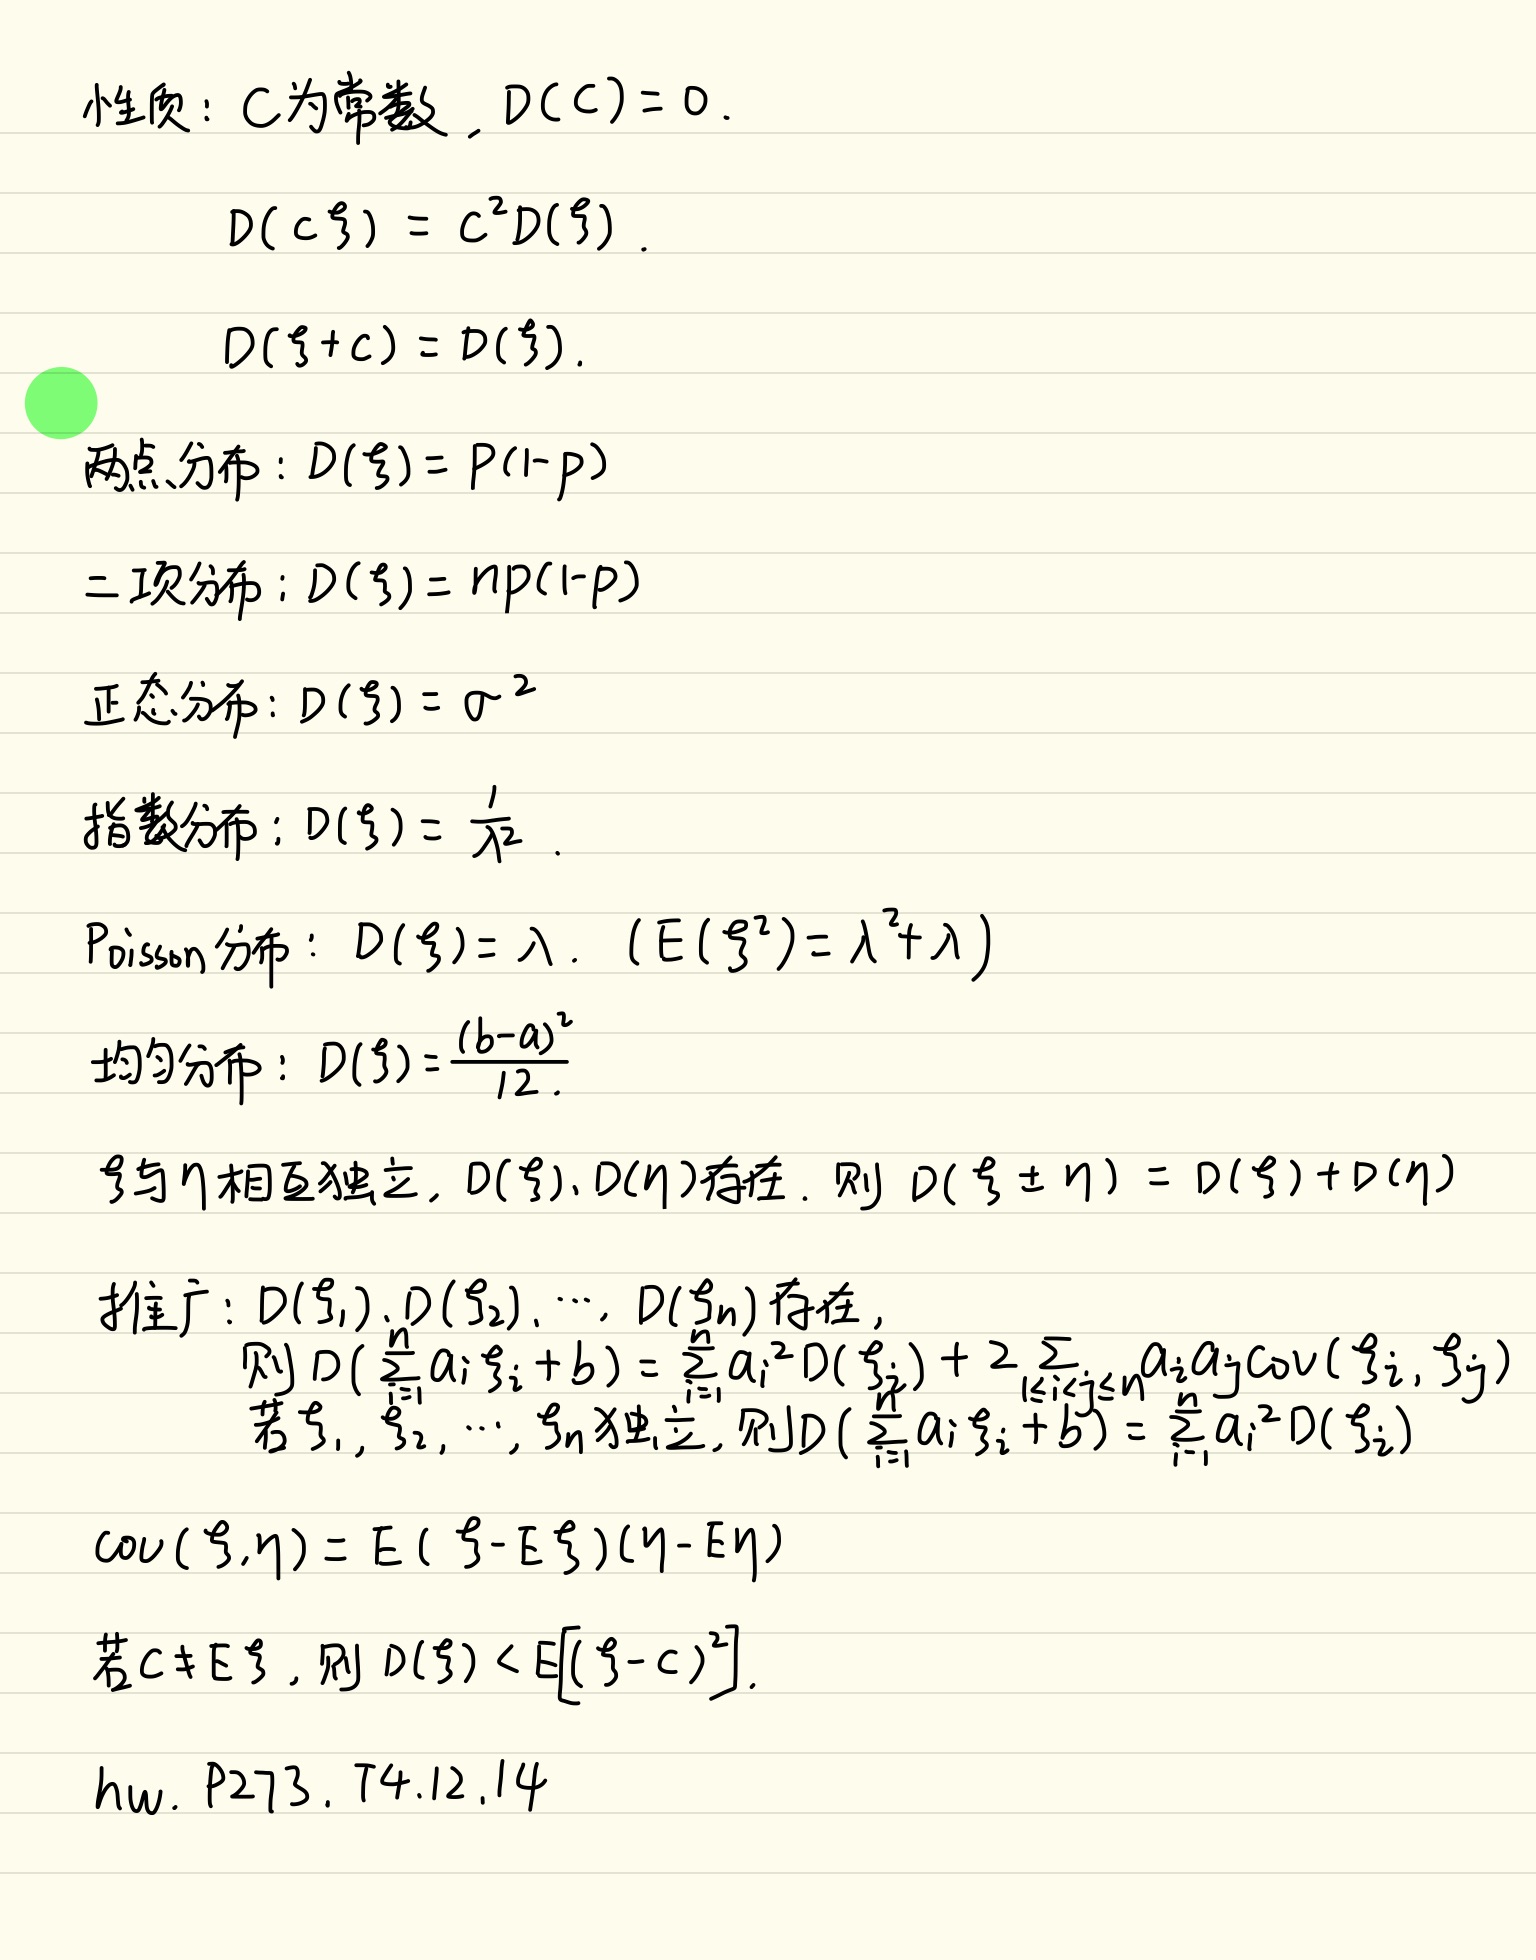 性质：C为常数，D(C)=0.
D(cξ) = C²D(ξ).
D(ξ+c) = D(ξ).
两点分布：D(ξ)=P(1-p)
二项分布：D(ξ)=np(1-p)
正态分布：D(ξ)=σ²
指数分布：D(ξ)=1/λ².
Poisson分布：D(ξ)=λ. (E(ξ²)=λ²+λ)
均匀分布：D(ξ)=(b-a)²/12.
ξ与η相互独立，D(ξ)、D(η)存在. 则 D(ξ±η) = D(ξ)+D(η)
推广：D(ξ₁)、D(ξ₂)、…，D(ξn)存在，
则 D(∑_{i=1}^{n} aᵢξᵢ+b) = ∑_{i=1}^{n} aᵢ²D(ξᵢ) + 2∑_{1≤i<j≤n} aᵢaⱼcov(ξᵢ, ξⱼ)
若ξ₁, ξ₂, …, ξn独立，则D(∑_{i=1}^{n} aᵢξᵢ+b) = ∑_{i=1}^{n} aᵢ²D(ξᵢ)
cov(ξ,η) = E(ξ-Eξ)(η-Eη)
若C≠Eξ，则 D(ξ) < E[(ξ-c)²].
hw. P273. T4.12.14